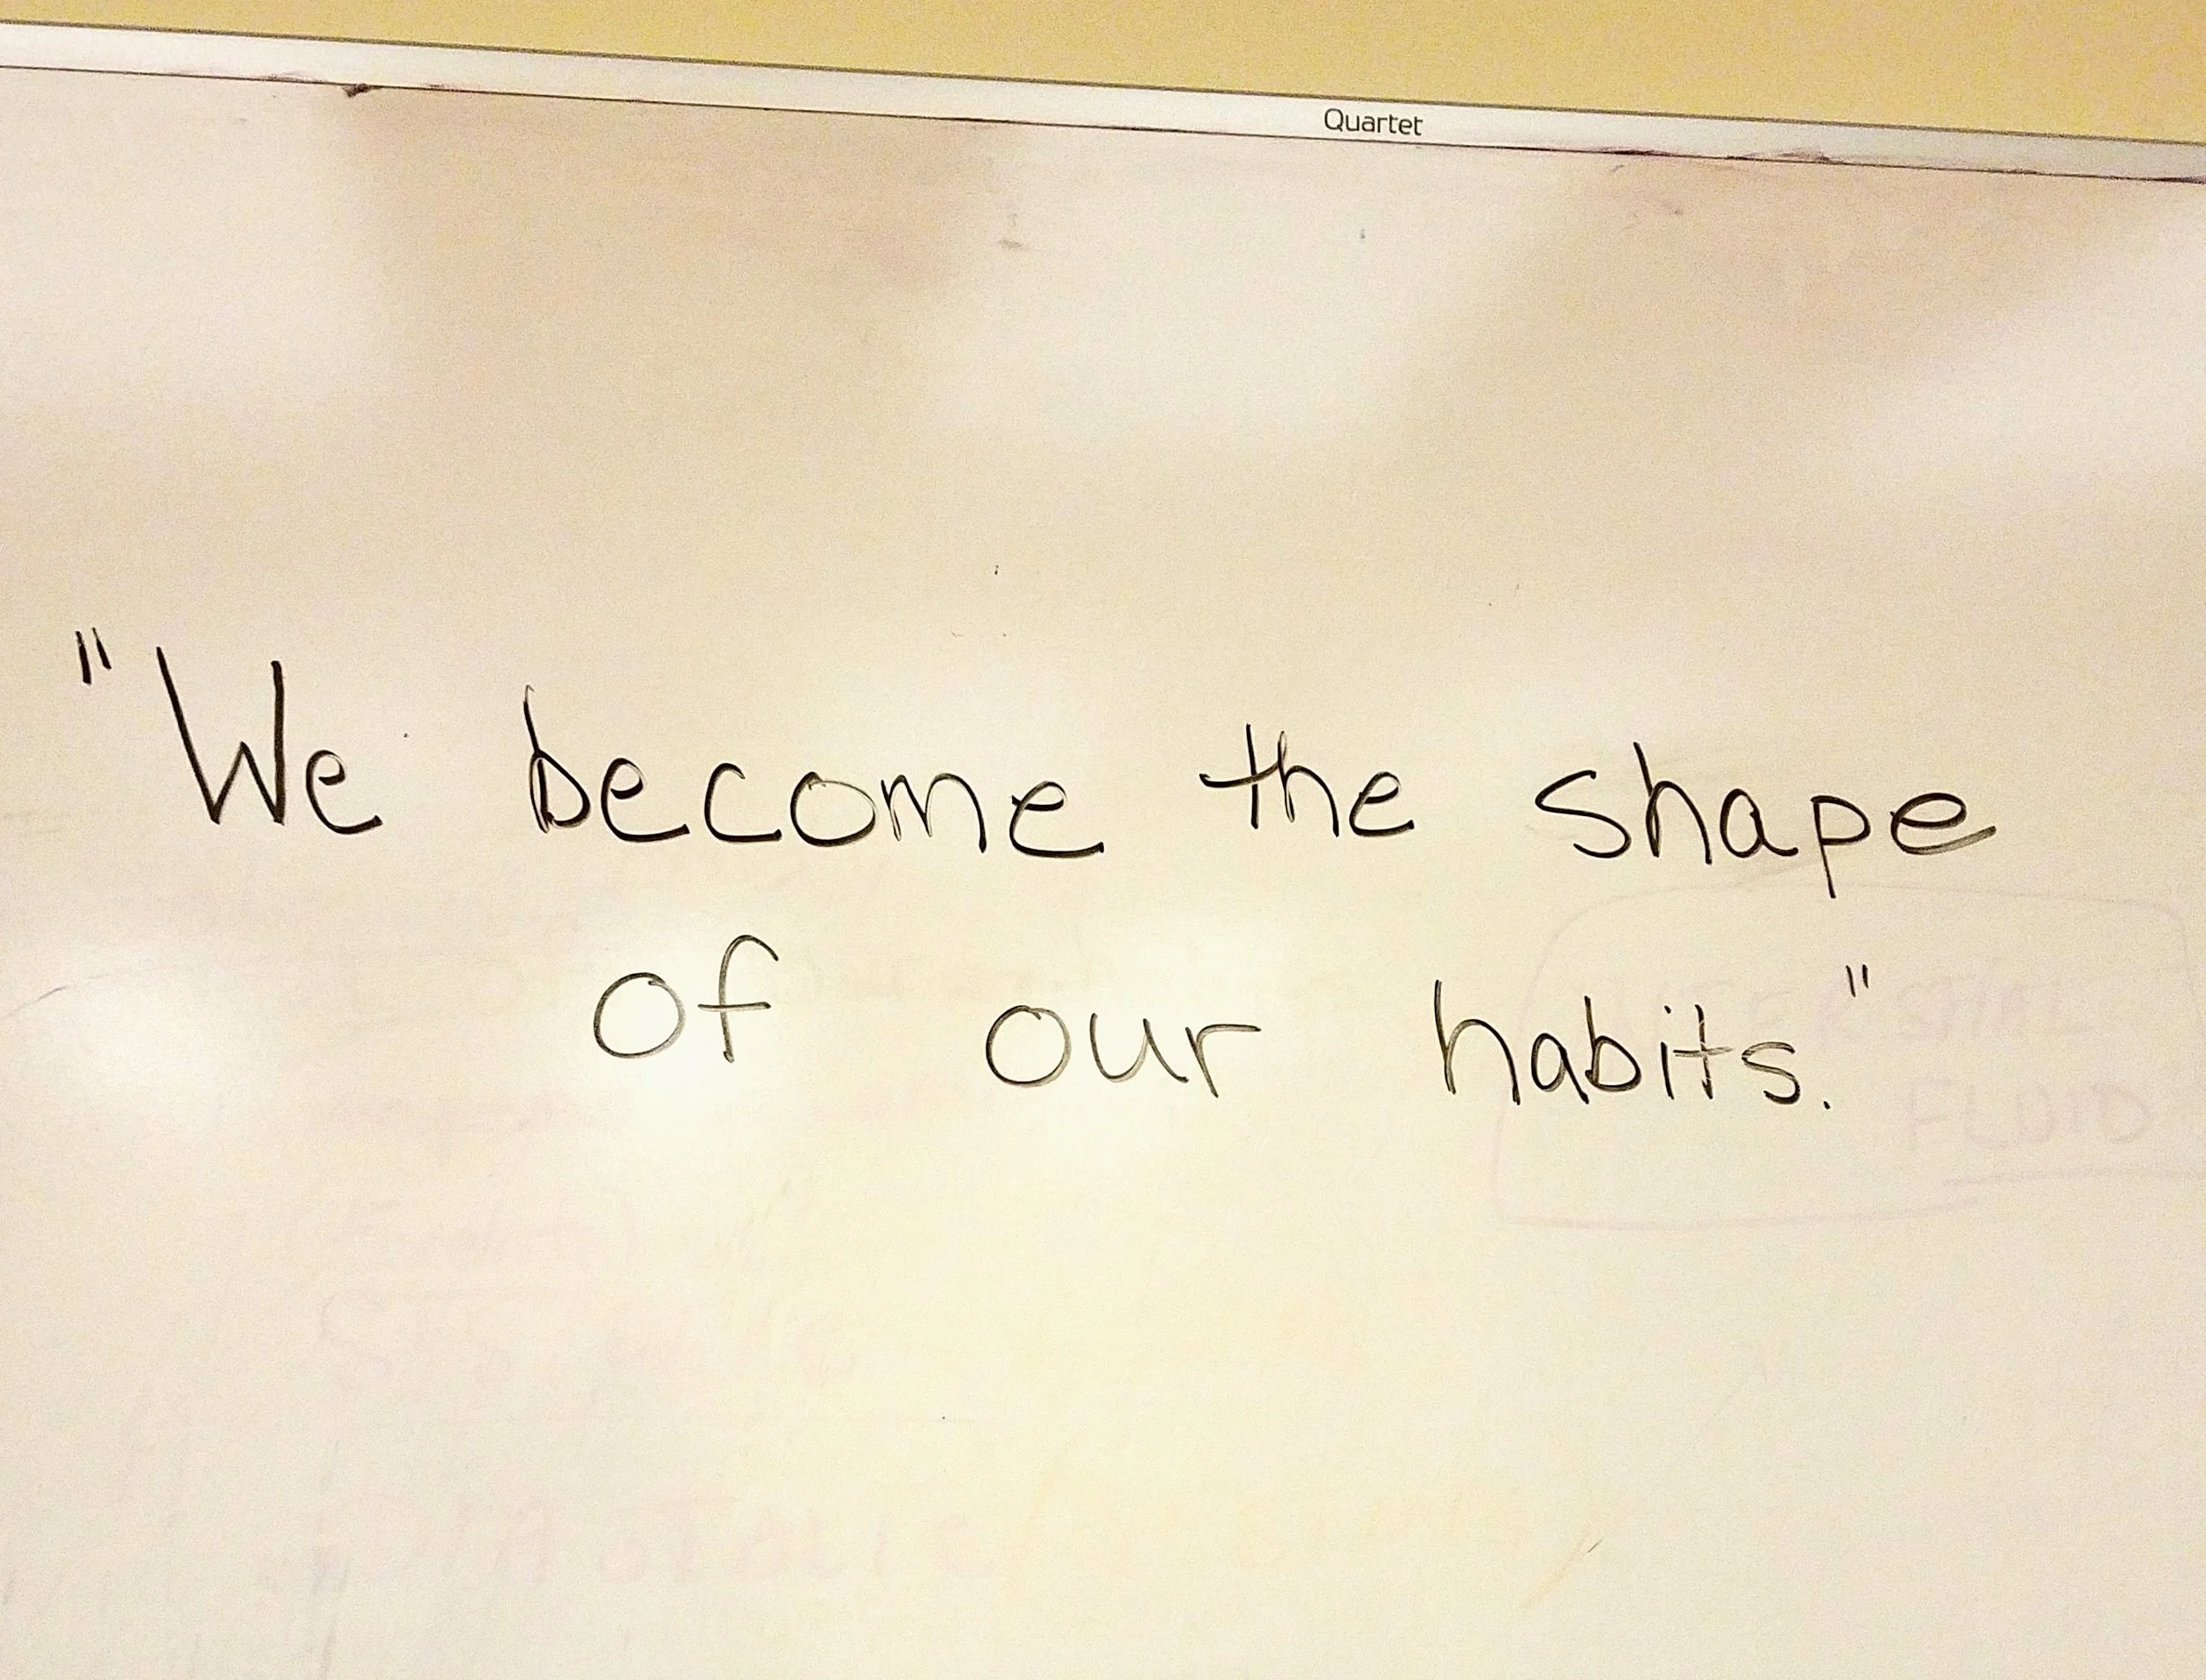 Quartet
"We become the shape
of our habits."
FLUID